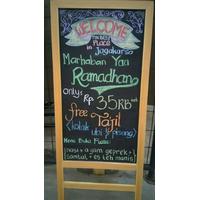 WELCOME
The Best
Place
in Jagakarsa
Marhaban Yaa
Ramadhan
only: Rp 35RB
free Ta'jil
(kolak ubi / pisang)
Menu Buka Puasa:
nasi + ayam geprek +
sambal + es teh manis